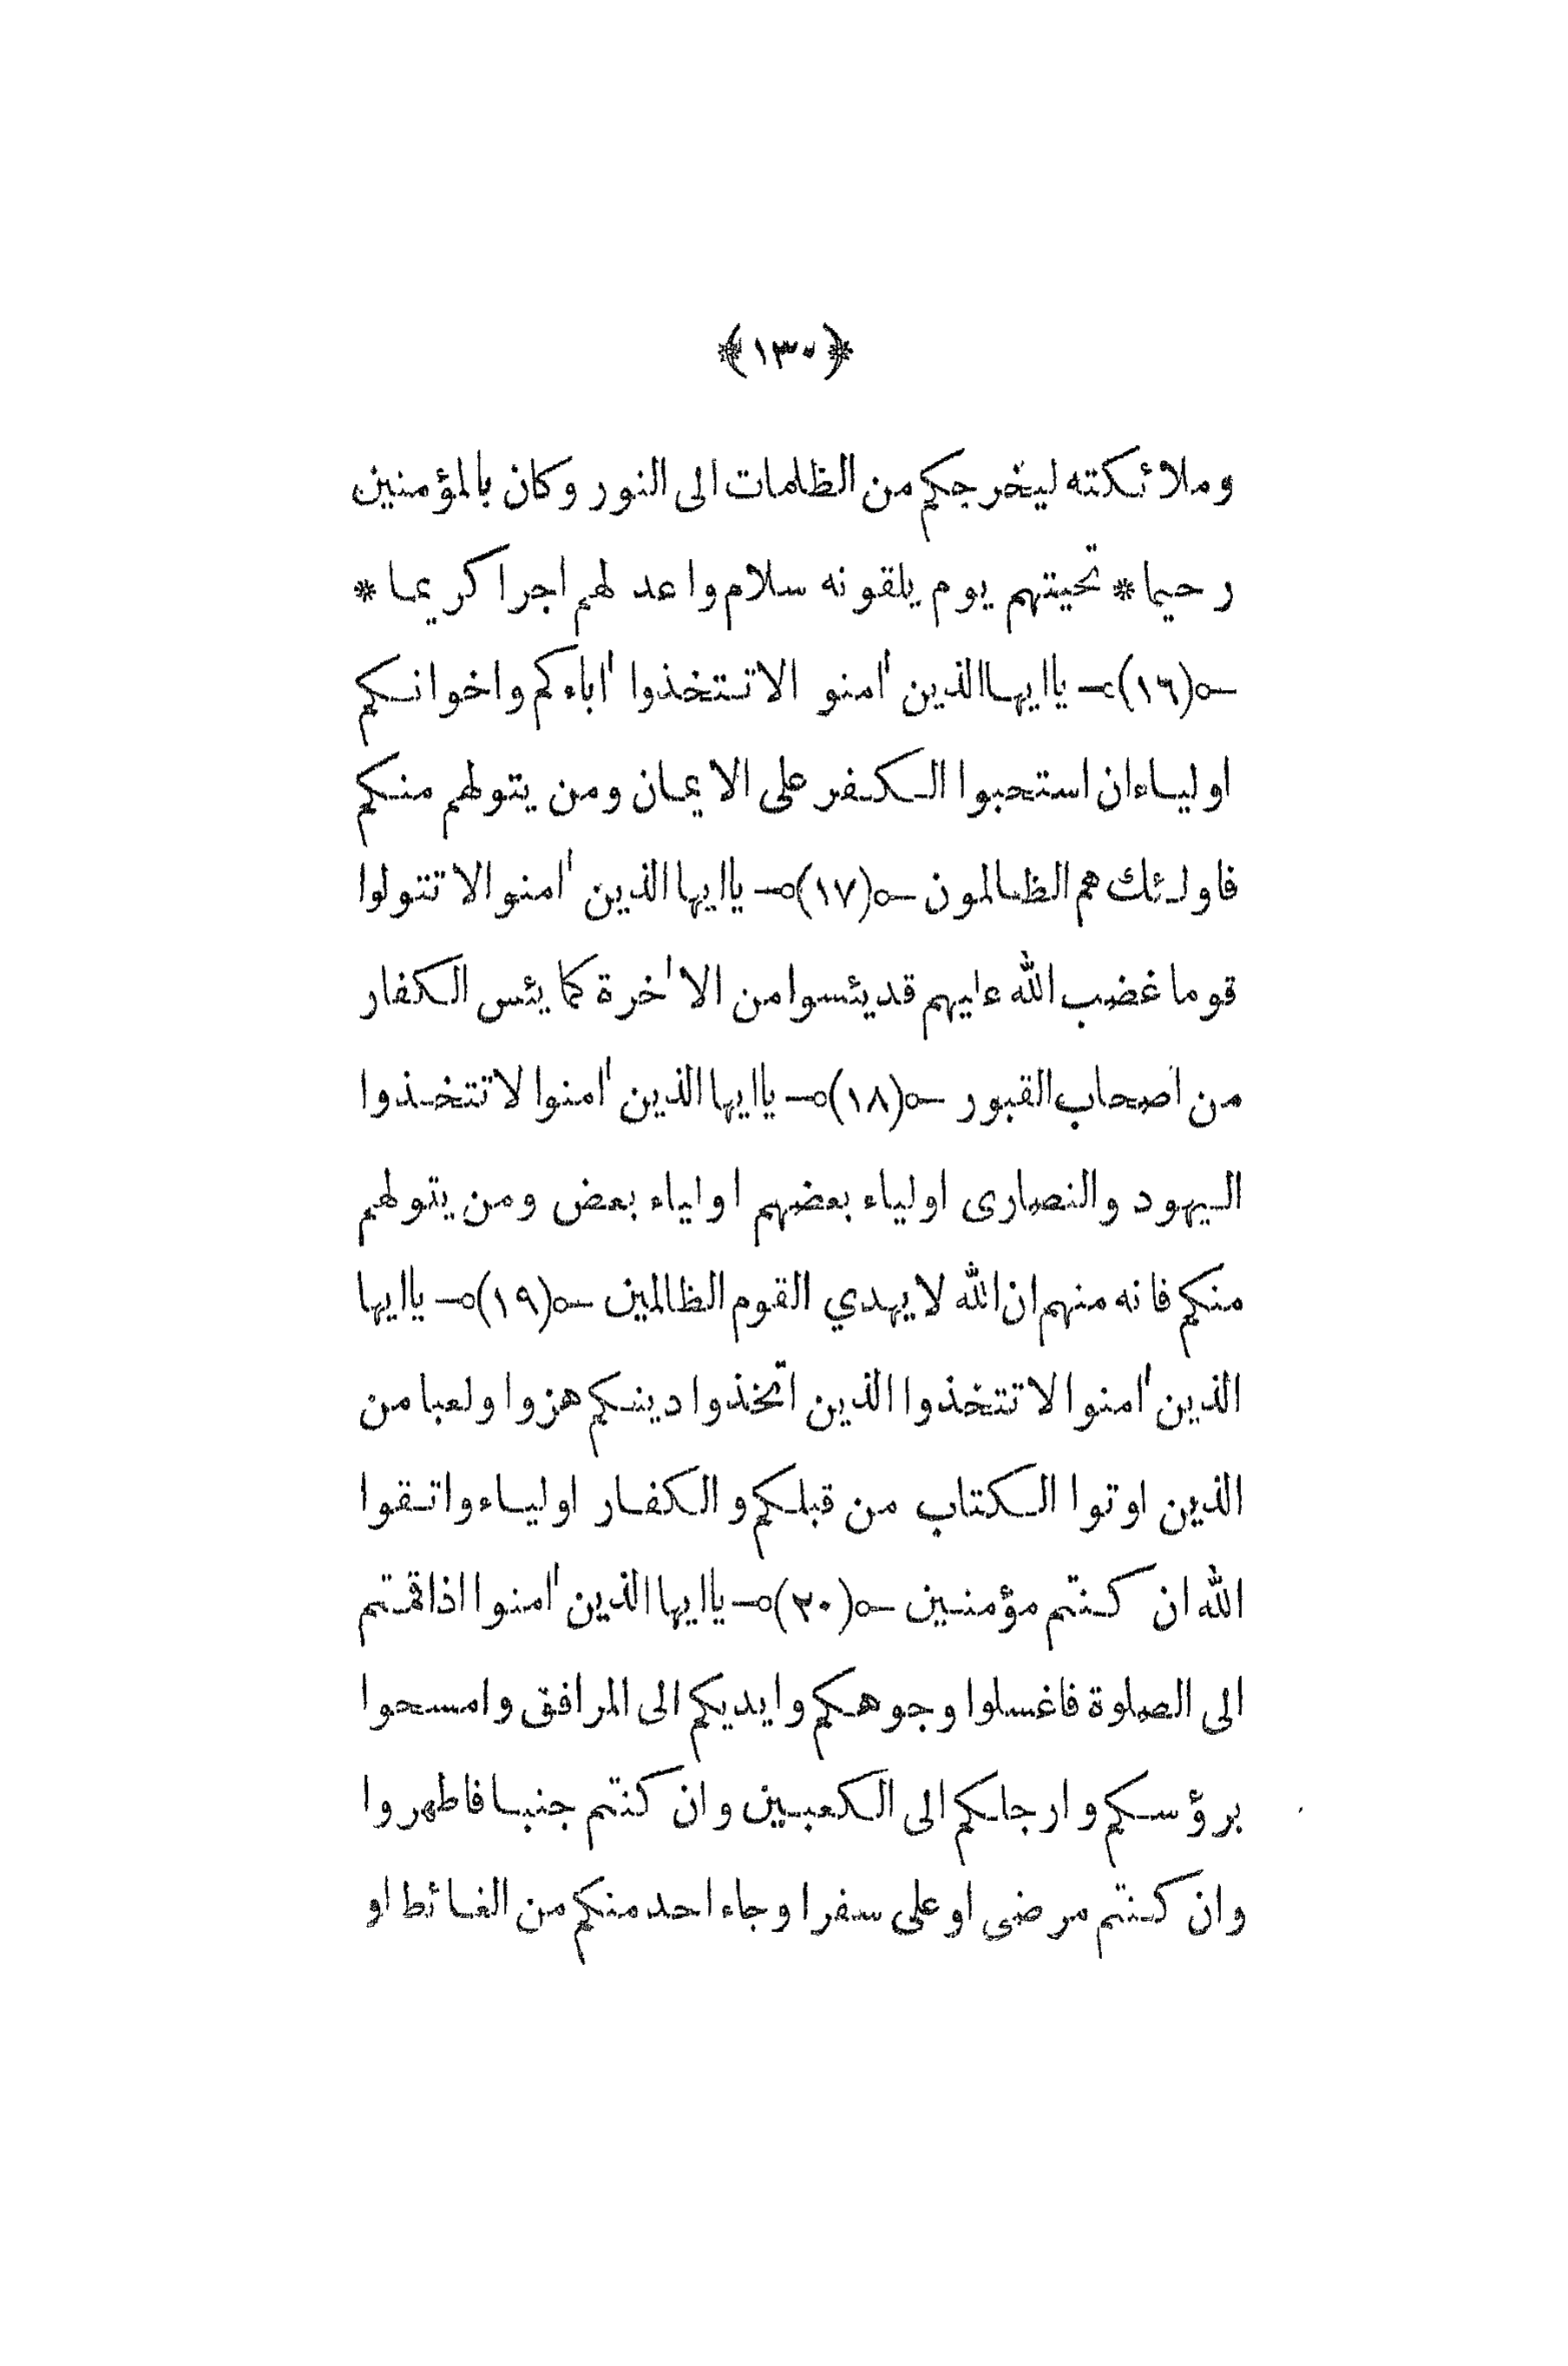 ﴿١٣٠﴾
وملائكته ليخرجكم من الظلمات الى النور وكان بالمؤمنين
رحيما * تحيتهم يوم يلقونه سلام واعد لهم اجرا كريما *
(١٦) ياايها الذين اٰمنو الاتتخذوا اٰباءكم واخوانكم
اولياء ان استحبوا الكفر على الايمان ومن يتولهم منكم
فاولئك هم الظالمون (١٧) ياايها الذين اٰمنوا لا تتولوا
قوما غضب الله عليهم قد يئسوا من الاٰخرة كما يئس الكفار
من اصحاب القبور (١٨) ياايها الذين اٰمنوا لا تتخذوا
اليهود والنصارى اولياء بعضهم اولياء بعض ومن يتولهم
منكم فانه منهم ان الله لا يهدي القوم الظالمين (١٩) ياايها
الذين اٰمنوا لا تتخذوا الذين اتخذوا دينكم هزوا ولعبا من
الذين اوتوا الكتاب من قبلكم والكفار اولياء واتقوا
الله ان كنتم مؤمنين (٢٠) ياايها الذين اٰمنوا اذا قمتم
الى الصلوة فاغسلوا وجوهكم وايديكم الى المرافق وامسحوا
برؤسكم وارجلكم الى الكعبين وان كنتم جنبا فاطهروا
وان كنتم مرضى او على سفر او جاء احد منكم من الغائط او